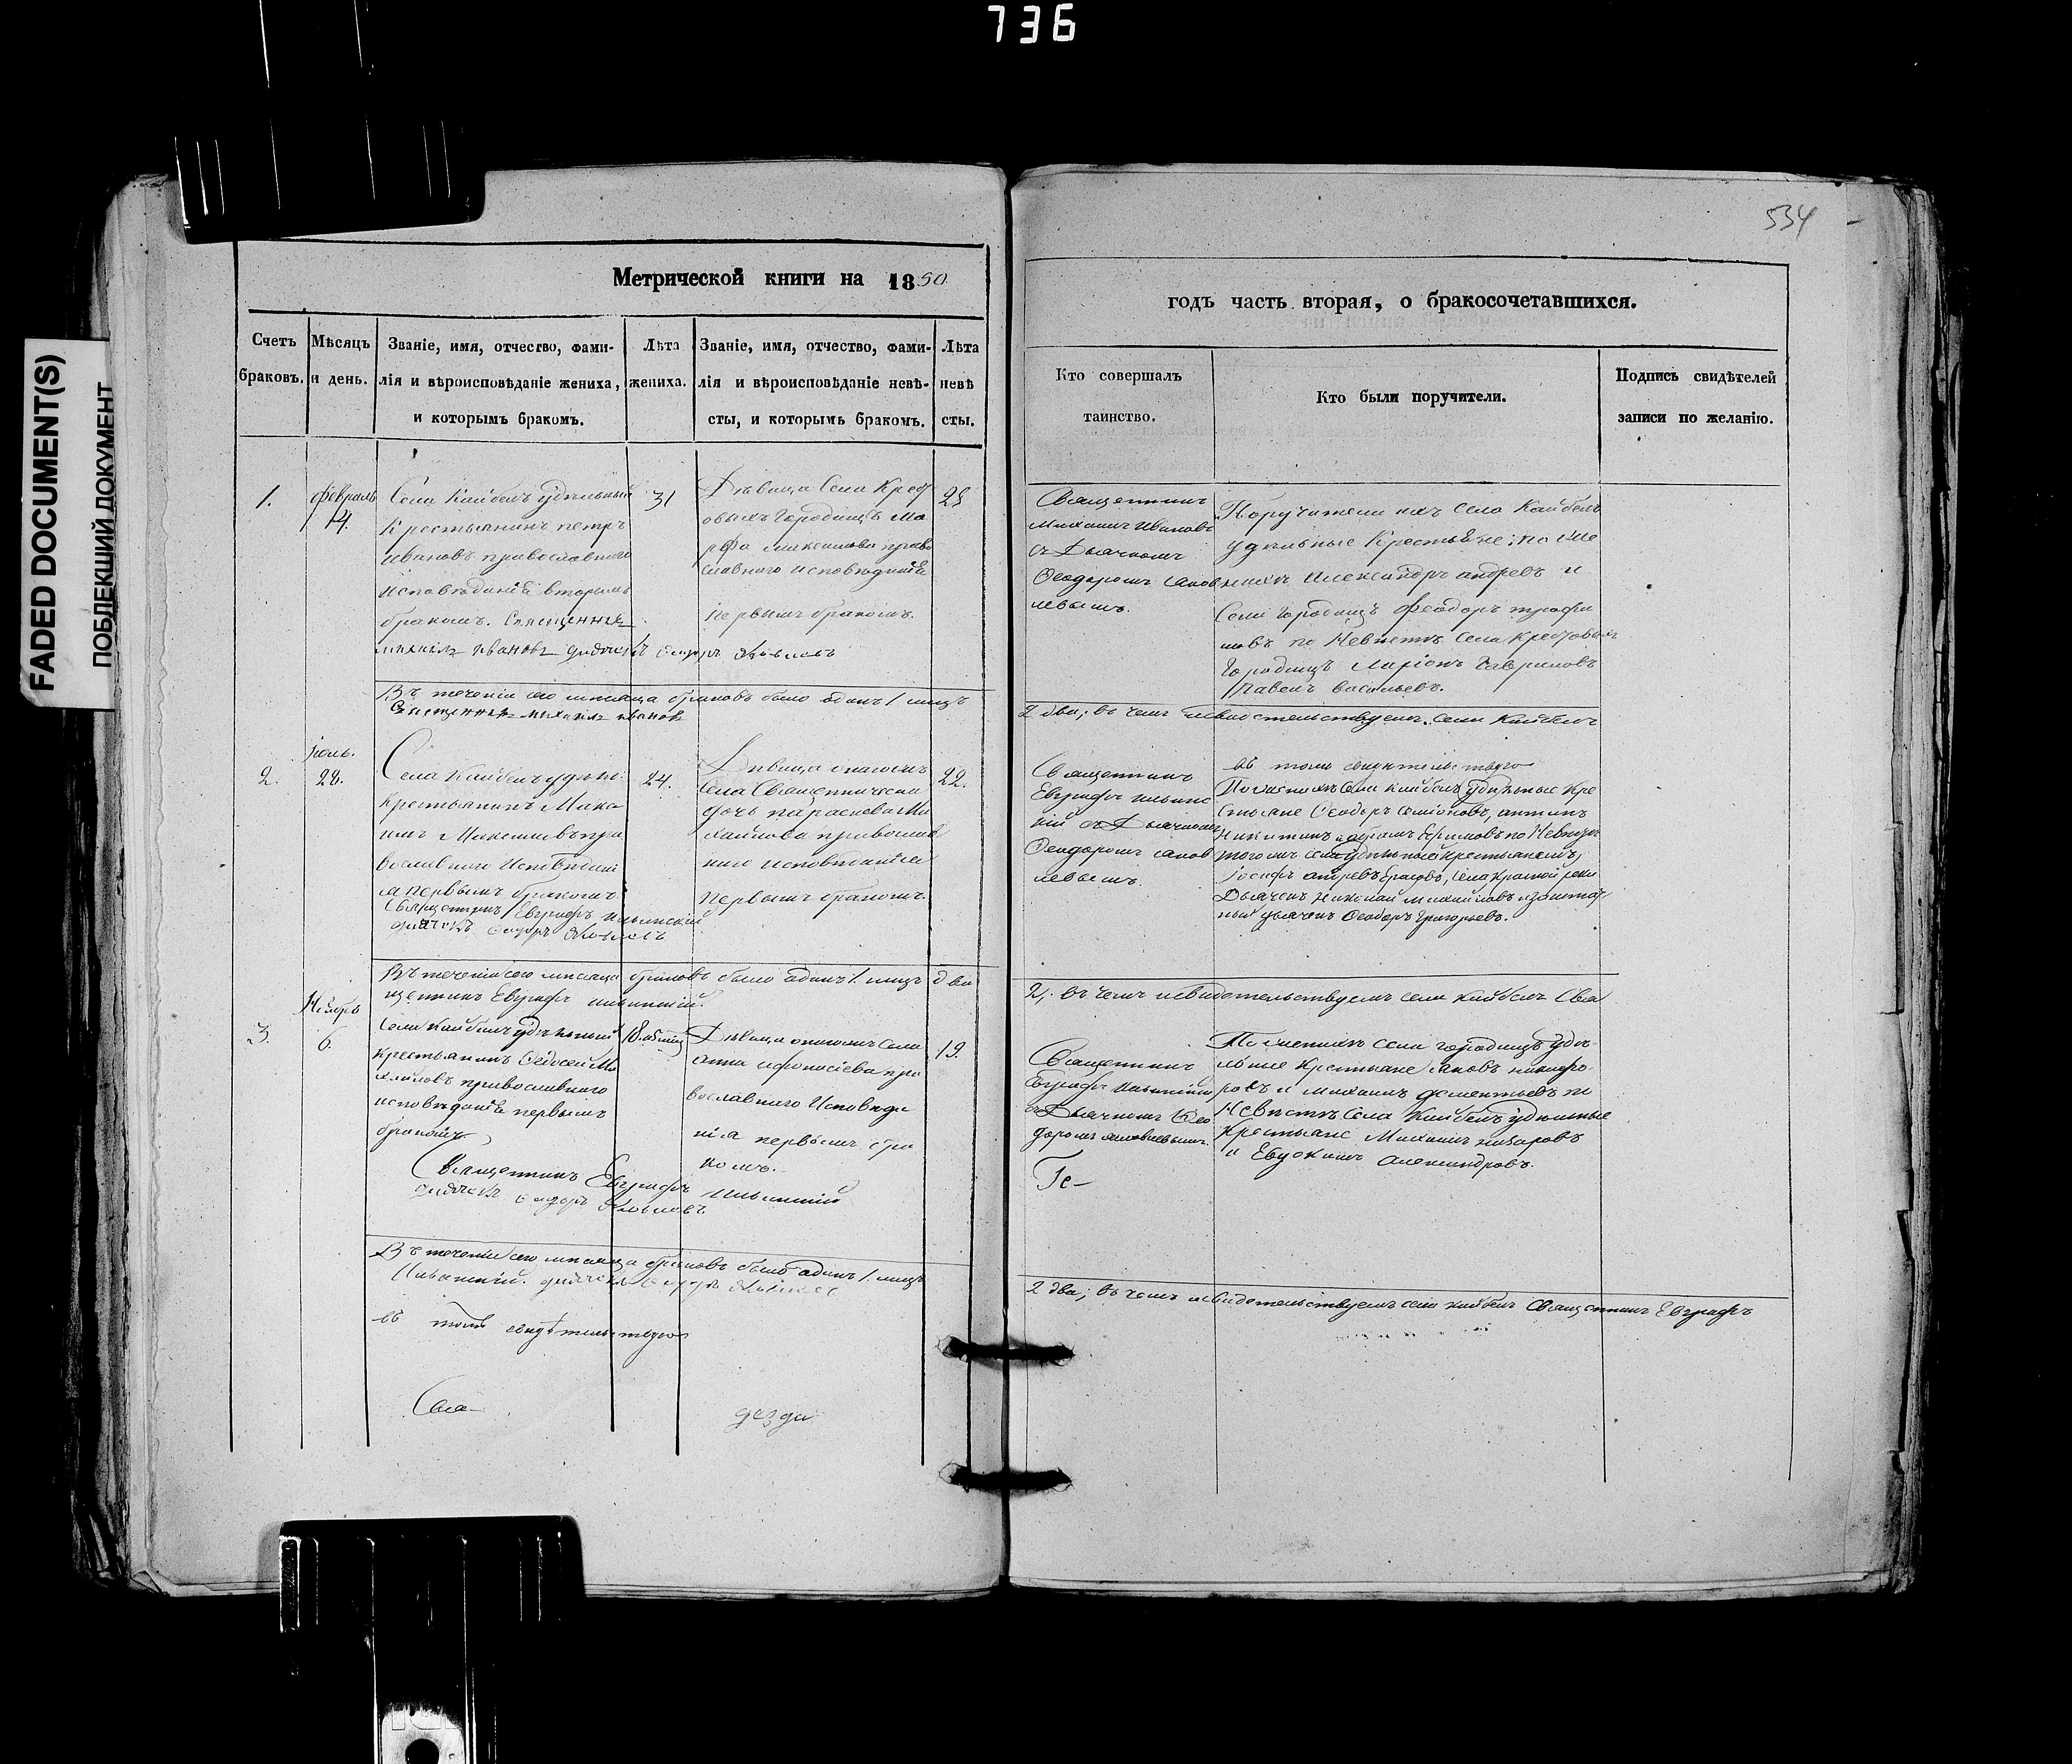 736
FADED DOCUMENT(S)
ПОБЛЕКШИЙ ДОКУМЕНТ
534
Метрической книги на 1850
годъ часть вторая, о бракосочетавшихся.
Счетъ браковъ.
Мѣсяцъ и день.
Званіе, имя, отчество, фами-
лія и вѣроисповѣданіе жениха,
и которымъ бракомъ.
Лѣта
жениха.
Званіе, имя, отчество, фами-
лія и вѣроисповѣданіе невѣ-
сты, и которымъ бракомъ.
Лѣта
невѣ
сты.
Кто совершалъ
таинство.
Кто были поручители.
Подпись свидѣтелей
записи по желанію.
1.
февраль
14.
Села Кайбелъ удѣльный
Крестьянинъ петръ
ивановъ православнаго
исповѣданія вторымъ
бракомъ. Священникъ
михаилъ Ивановъ дьячекъ Ѳедоръ Яковлевъ
31
Дѣвица Села Крест
овыхъ Городищъ Ма
рфа максимова право
славнаго исповѣданія
первымъ бракомъ.
Священникъ
Михаилъ Ивановъ
съ Дьячкомъ
Ѳеодоромъ Яков
левымъ.
Поручители ихъ села Кайбелъ
удѣльные Крестьяне: по же
нихѣ Александръ андревъ и
Села Городищъ Феодоръ трофи
мовъ по Невѣстѣ села Крестовыхъ
Городищъ Ларіонъ Гавриловъ
Павелъ васильевъ.
Въ теченіи сего мѣсяца браковъ было одинъ 1 лицъ
Священникъ михаилъ ивановъ
2 два; въ чемъ и свидетельствуемъ. села Кайбелъ
2.
Іюль.
28.
Села Кайбелъ удѣль:
крестьянинъ Мака
имъ Максимовъ пра
вославнаго Исповѣдані
я первымъ бракомъ
Священникъ Евграфъ Ильинскій
дьячекъ Ѳедоръ Яковлевъ
24.
Дѣвица онагожъ
Села Священническа
дочь параскева Ми
хайлова православ
наго исповѣданія
первымъ бракомъ.
22.
Священникъ
Евграфъ ильинс
кій съ Дьячкомъ
Ѳеодоромъ Яков
левымъ.
въ томъ свидетельствую
По женихѣ Села Кайбелъ удѣльные Кре
стьяне Ѳеодоръ Семіоновъ, антипъ
тогожъ села удѣльные крестьянемъ,
Дьячекъ Николай михайловъ
дьячекъ Ѳеодоръ Григорьевъ.
Въ теченіи сего мѣсяца браковъ было одинъ 1. лицъ два
щенникъ Евграфъ ильинскій.
2; въ чемъ и свидетельствуемъ села Кайбелъ Свя
3.
Ноябрь
6.
Села Кайбелъ удѣльный
крестьянинъ Ѳедосей Ми
хайловъ православнаго
исповѣданія первымъ
бракомъ.
Священникъ Евграфъ Ильинскій
дьячекъ Ѳедоръ Яковлевъ
Дѣвица онагожъ Села
анна афонасіева пра
вославнаго Исповѣда
нія первымъ бра
комъ.
19.
Священникъ
Евграфъ Ильинскій
съ Дьячкомъ Ѳео
доромъ яковлевымъ.
Ге-
По женихѣ села городищъ удѣ-
льные Крестьяне яковъ никифо
ровъ и михаилъ дементьевъ по
Невѣстѣ Села Кайбелъ удѣльные
Крестьяне Михаилъ назаровъ
и Евдокимъ александровъ.
Въ теченіи сего мѣсяца браковъ было одинъ 1. лицъ
Ильинскій. дьячекъ Ѳедоръ Яковлевъ
2 два; въ чемъ и свидетельствуемъ села Кайбелъ Священникъ Евграфъ
въ томъ свидѣтельствую